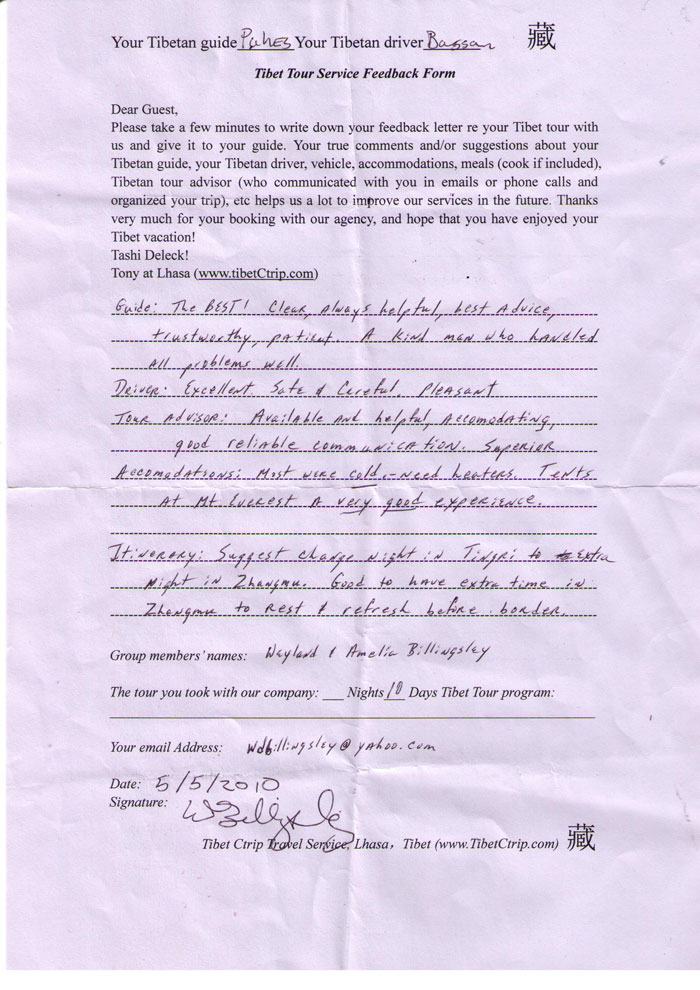 Your Tibetan guide Your Tibetan driver Bassan 藏
Tibet Tour Service Feedback Form
Dear Guest,
Please take a few minutes to write down your feedback letter re your Tibet tour with
us and give it to your guide. Your true comments and/or suggestions about your
Tibetan guide, your Tibetan driver, vehicle, accommodations, meals (cook if included),
Tibetan tour advisor (who communicated with you in emails or phone calls and
organized your trip), etc helps us a lot to improve our services in the future. Thanks
very much for your booking with our agency, and hope that you have enjoyed your
Tibet vacation!
Tashi Deleck!
Tony at Lhasa (www.tibetCtrip.com)
Guide: The BEST! Clear, Always helpful, best Advice,
trustworthy, patient. A kind man who handled
all problems well.
Driver: Excellent. Safe & Careful. Pleasant
Tour Advisor: Available and helpful, Accomodating,
good reliable communication. Superior
Accomodations: Most were cold - need heaters. Tents
At Mt. Everest a very good experience.
Itinerary: Suggest change night in Tingri to extra
night in Zhangmu. Good to have extra time in
Zhangmu to rest & refresh before border.
Group members' names: Wayland & Amelia Billingsley
The tour you took with our company: ___ Nights 10 Days Tibet Tour program:
Your email Address: wdbillingsley@yahoo.com
Date: 5/5/2010
Signature: W Billingsley
Tibet Ctrip Travel Service, Lhasa, Tibet (www.TibetCtrip.com) 藏